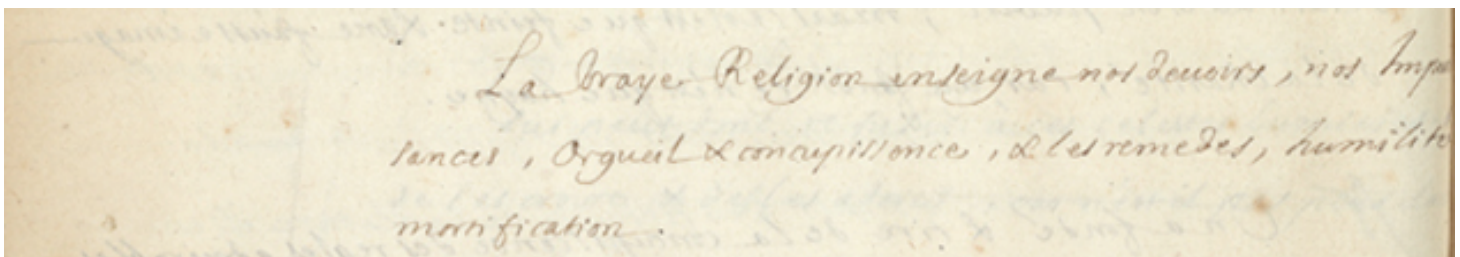 La vraye Religion enseigne nos devoirs, nos Impu
sances, Orgueil & concupissence, & les remedes, humilité
mortification.